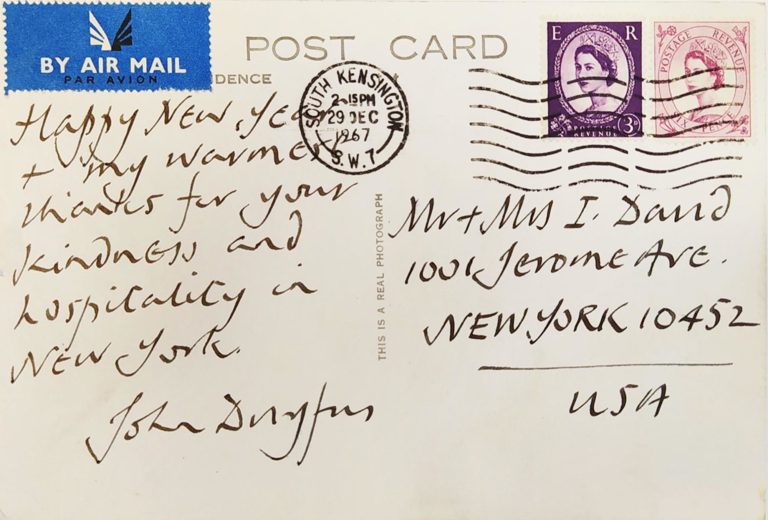 BY AIR MAIL
PAR AVION
POST CARD
DENCE
SOUTH KENSINGTON
2-15PM
29 DEC
1967
S.W.7
E R
REVENUE
3D
POSTAGE REVENUE
Happy New Yea
+ my warmes
thanks for your
kindness and
hospitality in
New York.
John Dreyfus
THIS IS A REAL PHOTOGRAPH
Mr + Mrs I. David
1001 Jerome Ave.
NEW YORK 10452
USA